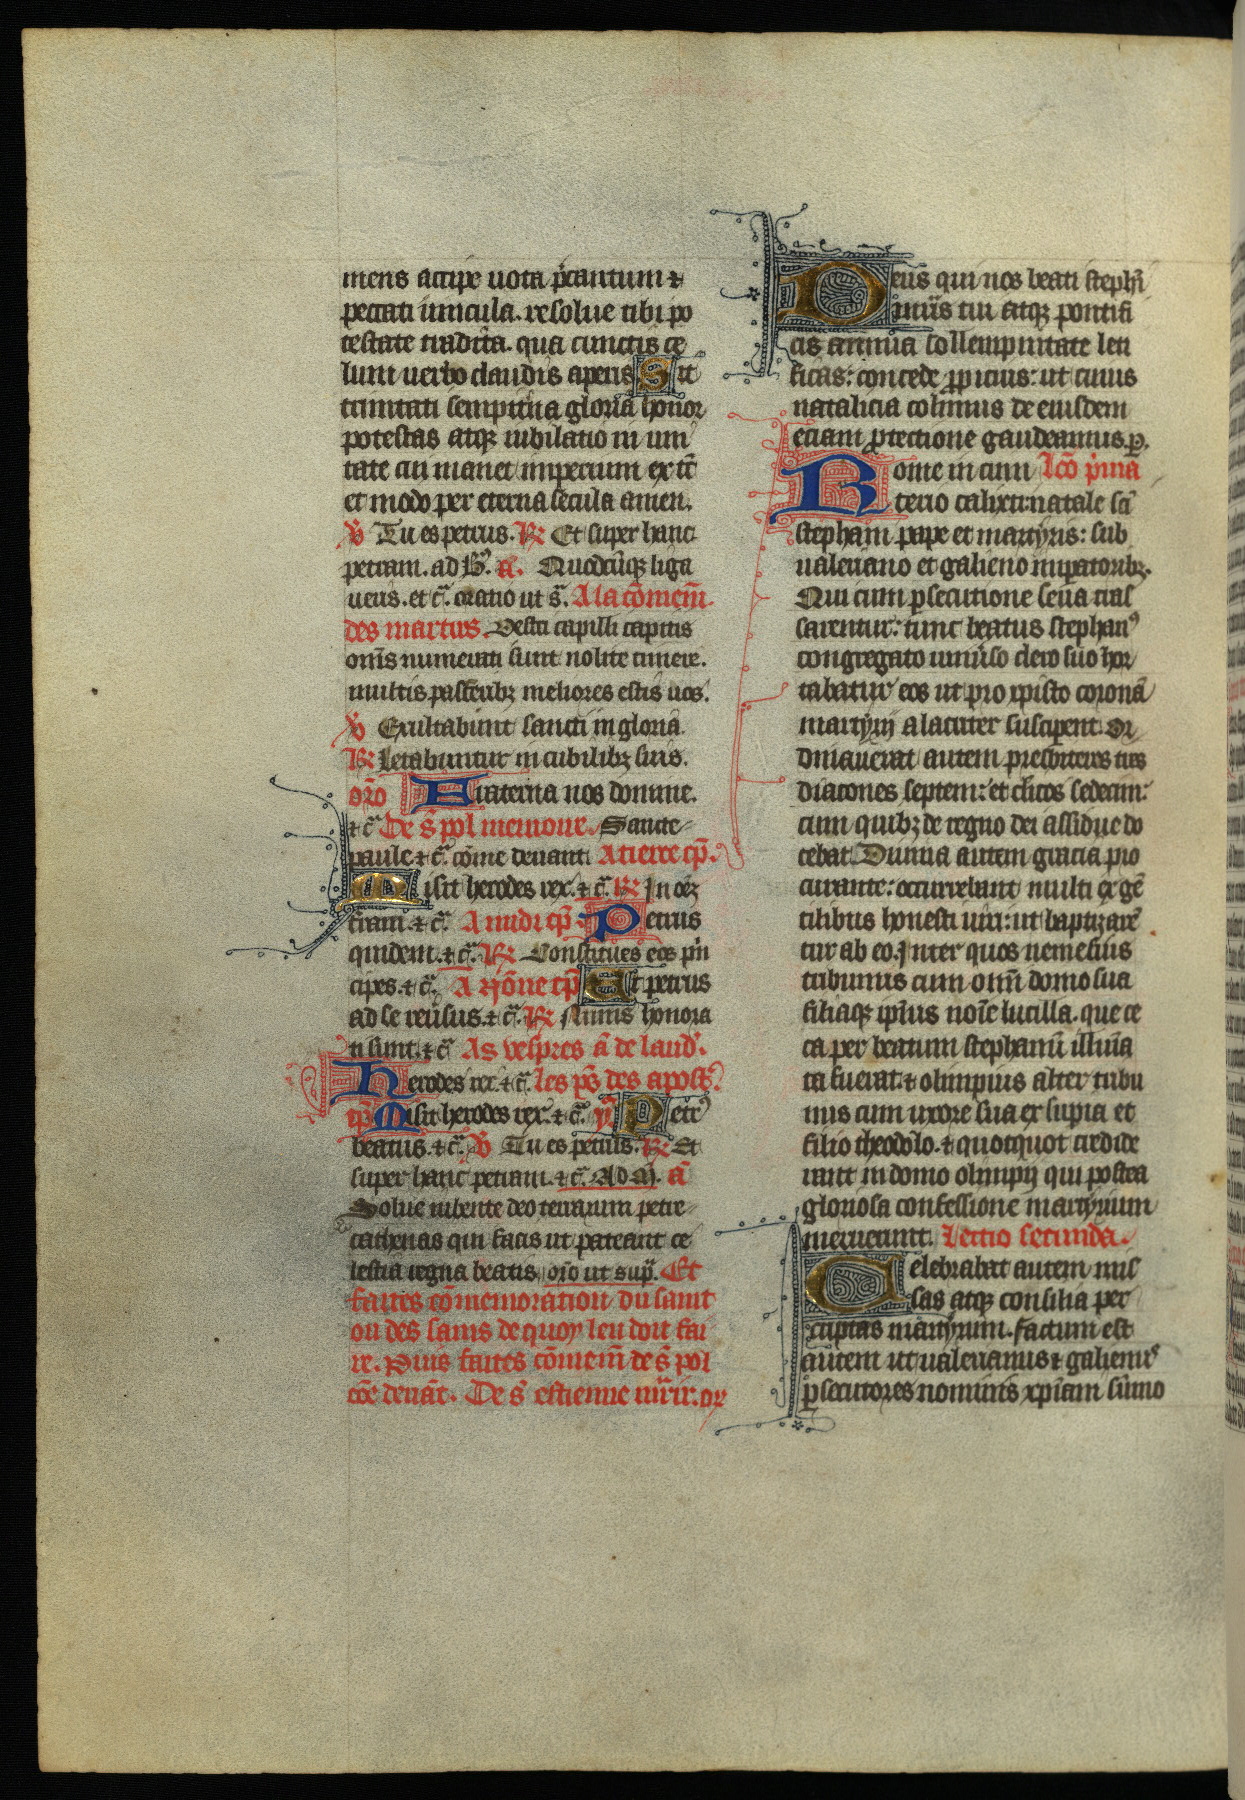 mens accipe uota p̃cantum ⁊
peccati uincula. resolue tibi po
testate tradita. qua cunctis ce
lum uerbo claudis aperis Sit
trinitati sempit̾na gloria honor
potestas atqꝫ iubilatio in uni
tate cui manet imperium ex tc̃
et modo per eterna secula amen.
V̾ Tu es petrus. R̾ Et super hanc
petram. ad B̾. a᷑. Quodcũqꝫ liga
ueris. et c̃. oratio ut s̃. A la cõmem̃.
des martirs. Vestri capilli capitis
om̃s numerati sunt nolite timere.
multis passeribꝫ meliores estis uos.
V̾ Exultabunt sancti in gloria.
R̾ Letabuntur in cubilibꝫ suis.
or̃o Fraterna nos domine.
⁊ c̃ De s̃ pol memoire. Sancte
paule ⁊ c̃. cõme deuant. A tierce cp̃.
Misit herodes rex. ⁊ c̃. R̾ In oẽꝫ
t̃ram. ⁊ c̃. A midi cp̃ Petrus
quidem. ⁊ c̃. R̾ Constitues eos p̃n
cipes. ⁊ c̃. A nõne cp̃ Et petrus
ad se reũsus. ⁊ c̃. R̾ Nimis honora
ti sunt. ⁊ c̃ As vespres a᷑ de laud᷑.
Herodes rex. ⁊ c̃. les ps̃ des apost̃.
cp̃ Misit herodes rex. ⁊ c̃. y᷑ Petrꝰ
beatus. ⁊ c̃. V̾ Tu es petrus. R̾ Et
super hanc petram. ⁊ c̃. Ad M̃. a᷑
Solue iubente deo terrarum petre
cathenas qui facis ut pateant ce
lestia regna beatis. or̃o ut sup̃. Et
faites cõmemoration du saint
ou des sains de quoy len doit fai
re. Puis faites cõmem̃ de s̃ pol
cõe deuãt. De s̃ estienne m̃ir. or
Deus qui nos beati steph̃i
m̃ris tui atqꝫ pontifi
cis annua sollempnitate leti
ficas: concede ꝓpicius: ut cuius
natalicia colimus de eiusdem
eciam ꝓtectione gaudeamus. ꝑ.
Rome in cimi Lc̃o p̃ma
terio calixti: natale sc̃i
stephani pape et martyris: sub
ualeriano et galieno impatoribꝫ.
Qui cum ꝑsecutione seua cras
sarentur: tunc beatus stephanꝰ
congregato uniũso clero suo hor
tabatur eos ut pro xp̃isto coronã
martyrij alacriter susciperent. Or
dinauerat autem presbiteros tres
diacones septem: et cl̃icos sedecim:
cum quibꝫ de regno dei assidue do
cebat. Diuina autem gracia pro
curante: occurrebant multi ex gẽ
tilibus honesti uiri: ut baptizarẽ
tur ab eo. Inter quos nemesius
tribunus cum om̃i domo sua
filiaqꝫ ip̃ius noĩe lucilla. que ce
ca per beatum stephanũ illuĩa
ta fuerat. ⁊ olimpius alter tribu
nus cum uxore sua exsupia et
filio theodolo. ⁊ quotquot credide
runt in domo olimpij qui postea
gloriosa confessione martyrium
meruerunt. Lectio secunda.
Celebrabat autem mis
sas atqꝫ consilia per
cuptas martyrum. factum est
autem ut ualerianus ⁊ galienuˢ
ꝑsecutores nominis xp̃iani sũmo